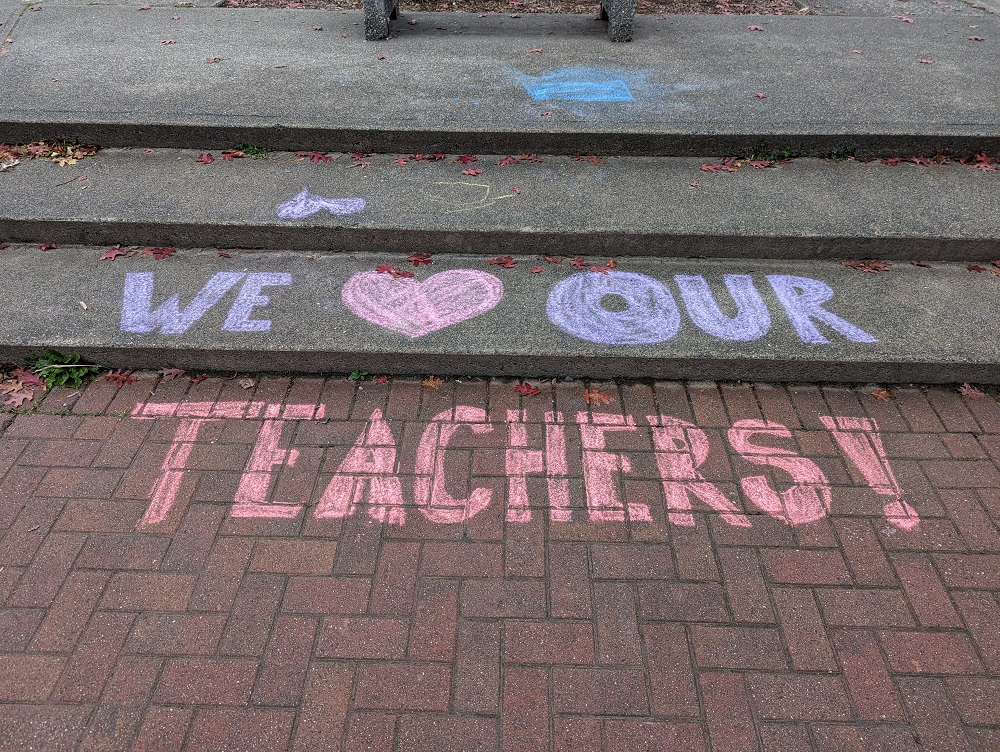 WE ♥ OUR
TEACHERS!